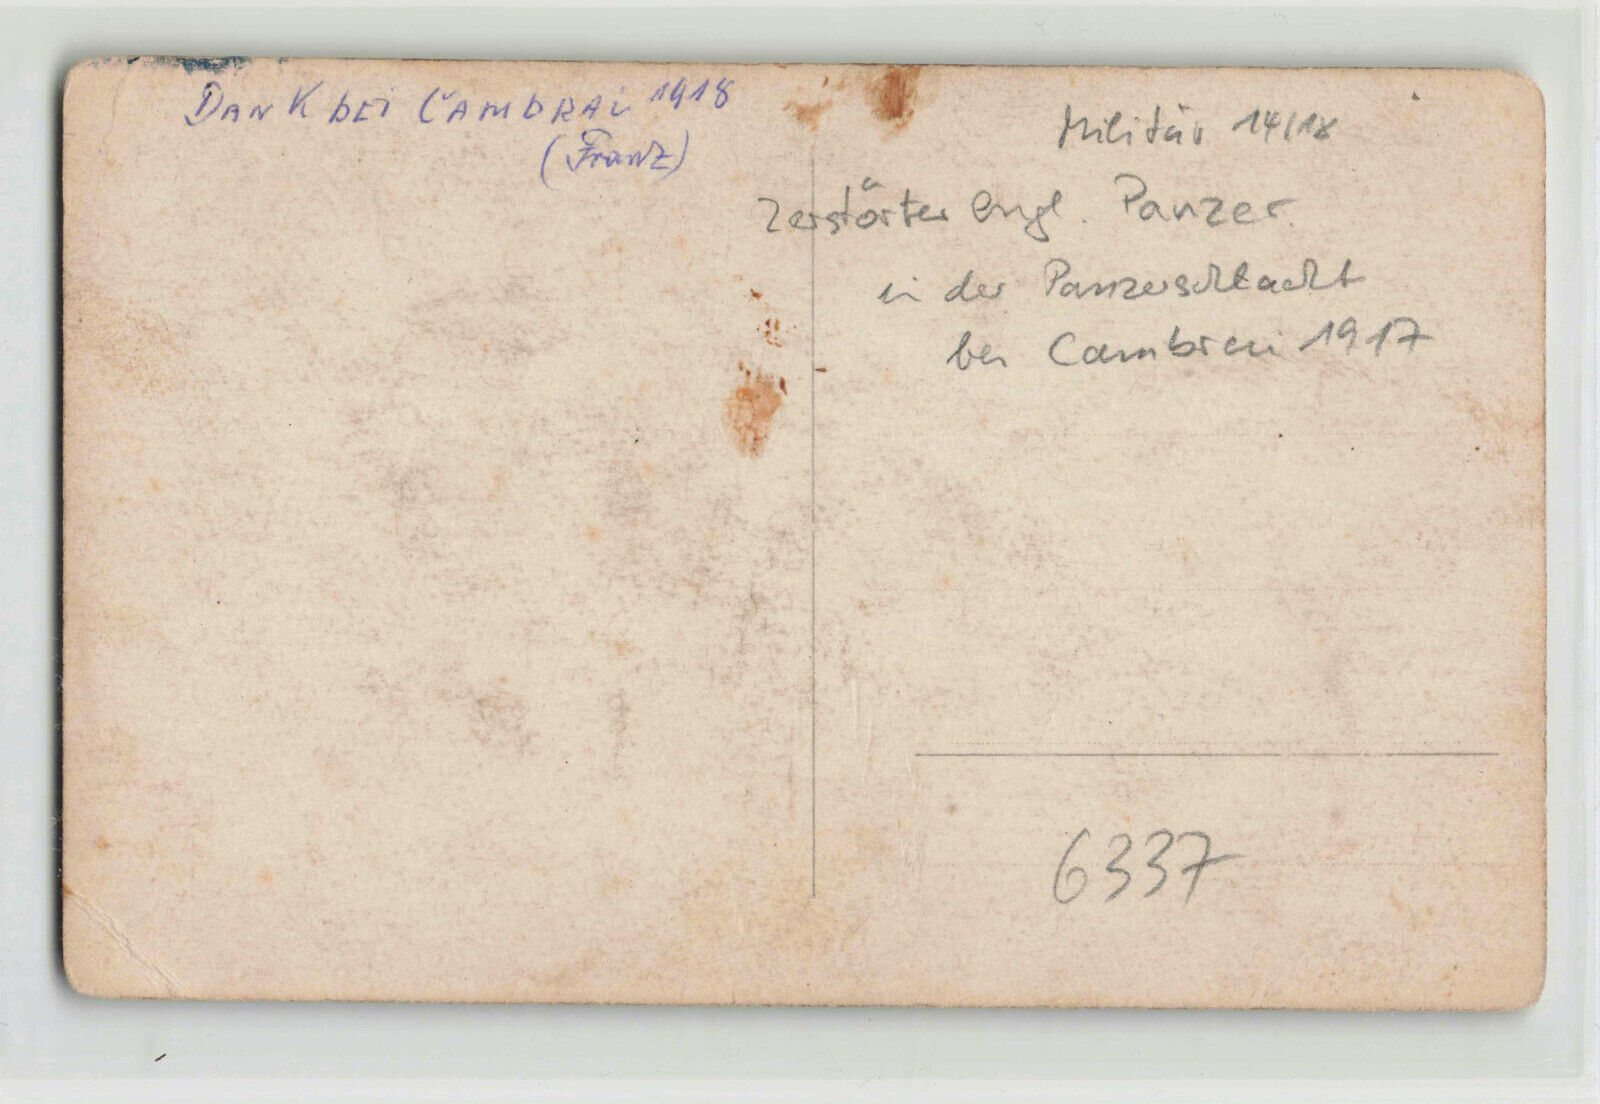 DANK bEI CAMbRAi 1918
(Franz)
Militär 14/18
Zerstörter engl. Panzer
in der Panzerschlacht
bei Cambrai 1917
6337